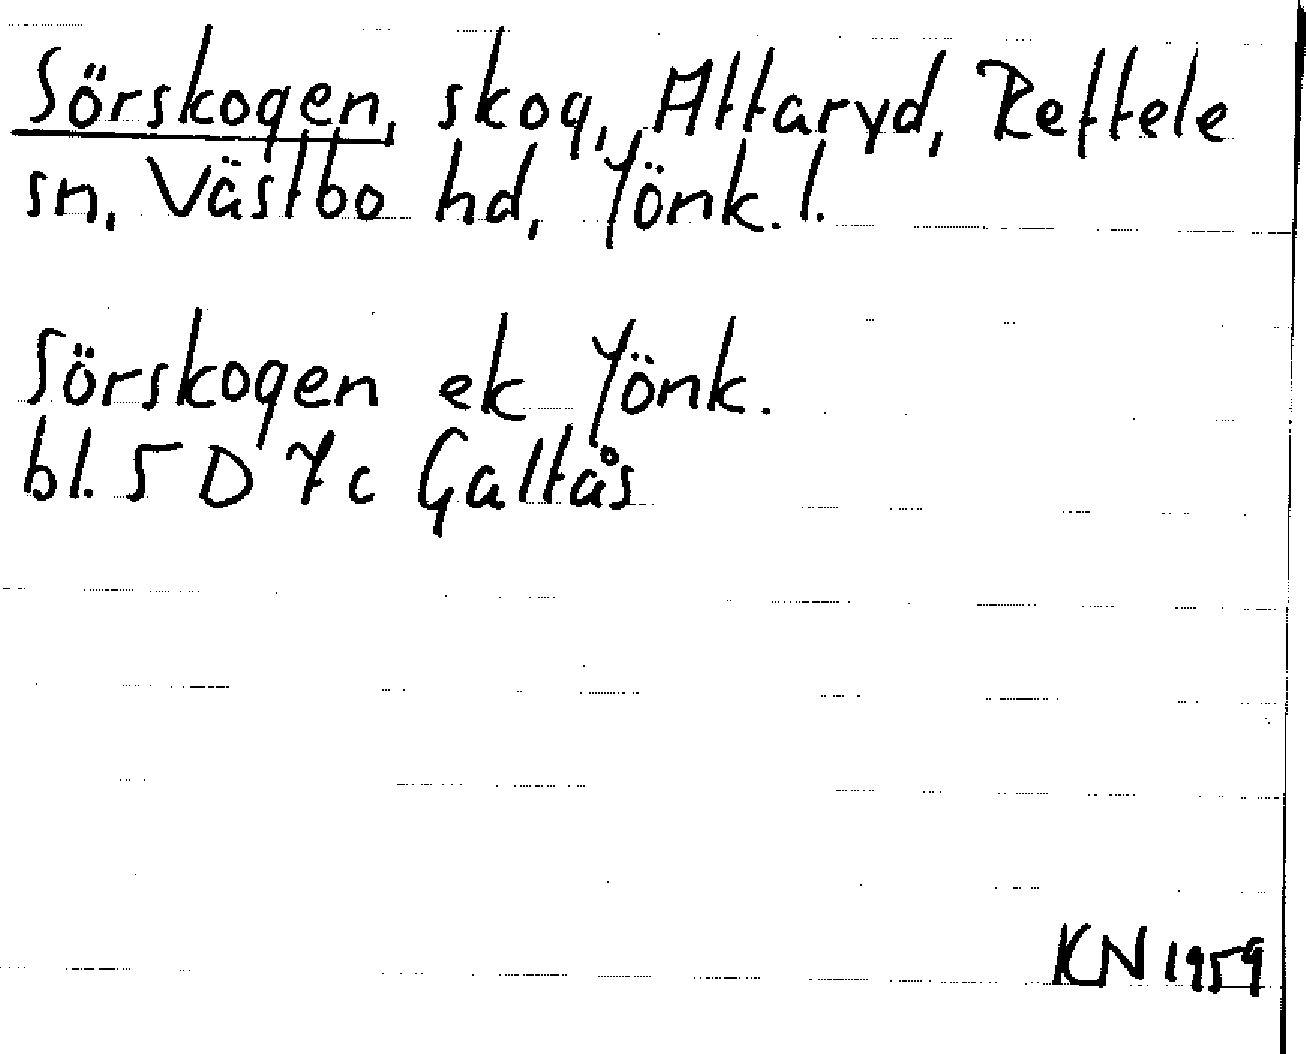 Sörskogen, skog, Attaryd, Reftele
sn, Västbo hd, Jönk. l.
Sörskogen ek Jönk.
bl. 5 D 7c Galtås
KN 1959